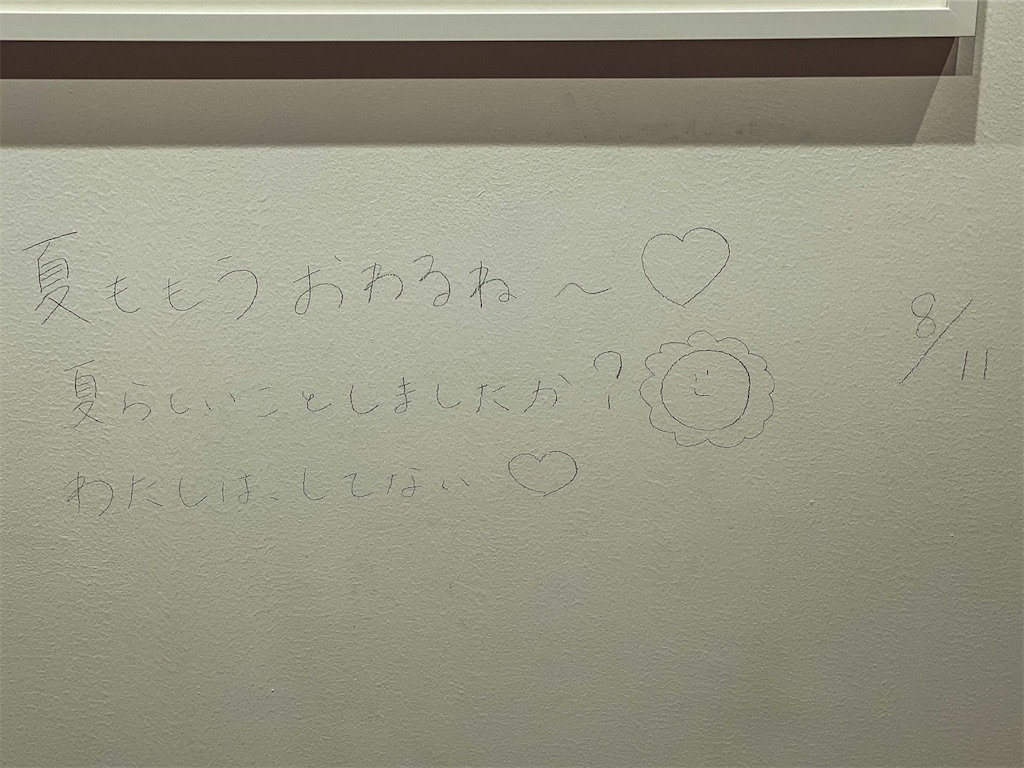 夏ももうおわるね〜♡
夏らしいことしましたか？
わたしは、してない♡
8/11